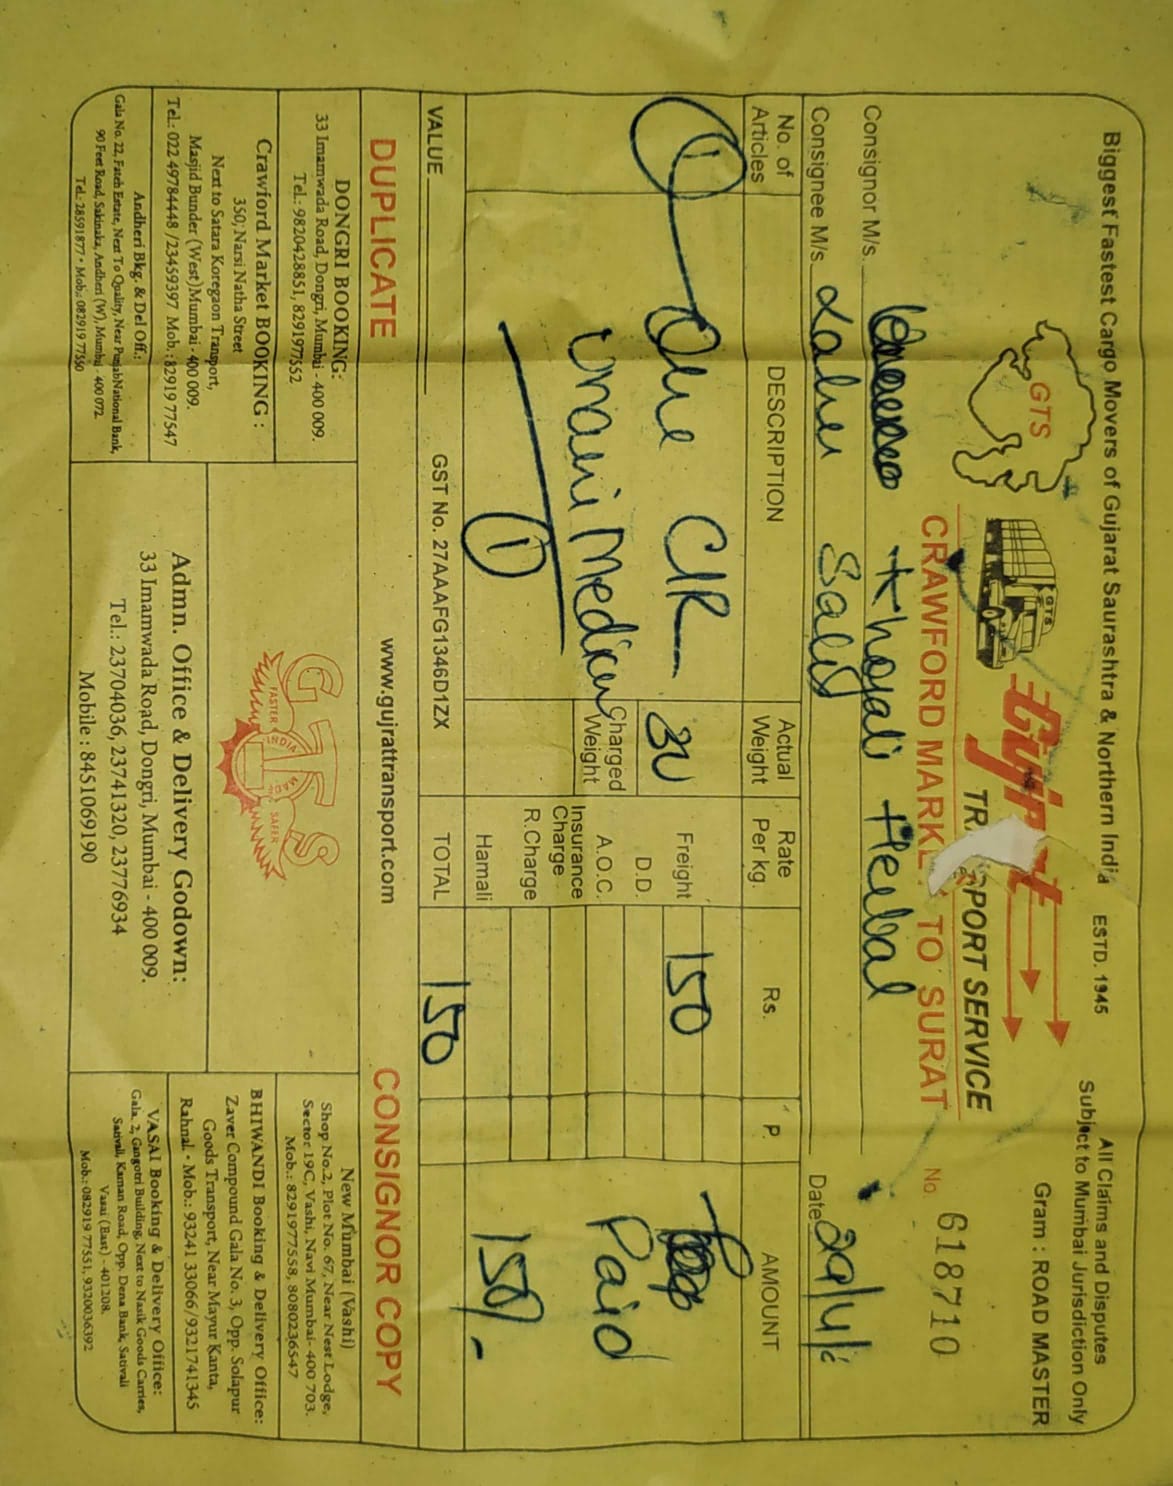 Biggest Fastest Cargo Movers of Gujarat Saurashtra & Northern India ESTD. 1945
All Claims and Disputes
Subject to Mumbai Jurisdiction Only
Gram : ROAD MASTER
GTS
GTS
Gujrat
TRANSPORT SERVICE
CRAWFORD MARKET TO SURAT
No. 618710
Consignor M/s. Khojati Herbal
Consignee M/s. Saheb
Date
No. of Articles DESCRIPTION Actual Weight Rate Per kg. Rs. P. AMOUNT
1 One 30 Freight 150
D.D.
Unani Medicine Charged Weight A.O.C. Paid
Insurance Charge
R.Charge
1 Hamali 150/-
VALUE GST No. 27AAAFG1346D1ZX TOTAL 150
DUPLICATE www.gujrattransport.com CONSIGNOR COPY
DONGRI BOOKING:
33 Imamwada Road, Dongri, Mumbai - 400 009.
Tel.: 9820428851, 829197552
Crawford Market BOOKING :
350, Narsi Natha Street
Next to Satara Koregaon Transport,
Masjid Bunder (West) Mumbai - 400 009.
Tel.: 022 49784448 / 23459397 Mob.: 82919 77547
Andheri Bkg. & Del Off.:
Gala No. 22, Fateh Estate, Next To Quality, Near Punjab National Bank,
90 Feet Road, Sakinaka, Andheri (W), Mumbai - 400 072.
Tel.: 28591877 • Mob.: 082919 77550
GTS
FASTER INDIA MADE SAFER
Admn. Office & Delivery Godown:
33 Imamwada Road, Dongri, Mumbai - 400 009.
Tel.: 23704036, 23741320, 23776934
Mobile : 8451069190
New Mumbai (Vashi)
Shop No.2, Plot No. 67, Near Nest Lodge,
Sector 19C, Vashi, Navi Mumbai- 400 703.
Mob.: 8291977558, 8080236547
BHIWANDI Booking & Delivery Office:
Zaver Compound Gala No. 3, Opp. Solapur
Goods Transport, Near Mayur Kanta,
Rahnal. - Mob.: 93241 33066 / 9321741345
VASAI Booking & Delivery Office:
Gala. 2, Gangotri Building, Next to Nasik Goods Carries,
Sativali, Kaman Road, Opp. Dena Bank, Sativali
Vasai (East) - 401208.
Mob.: 082919 77551, 9320036392